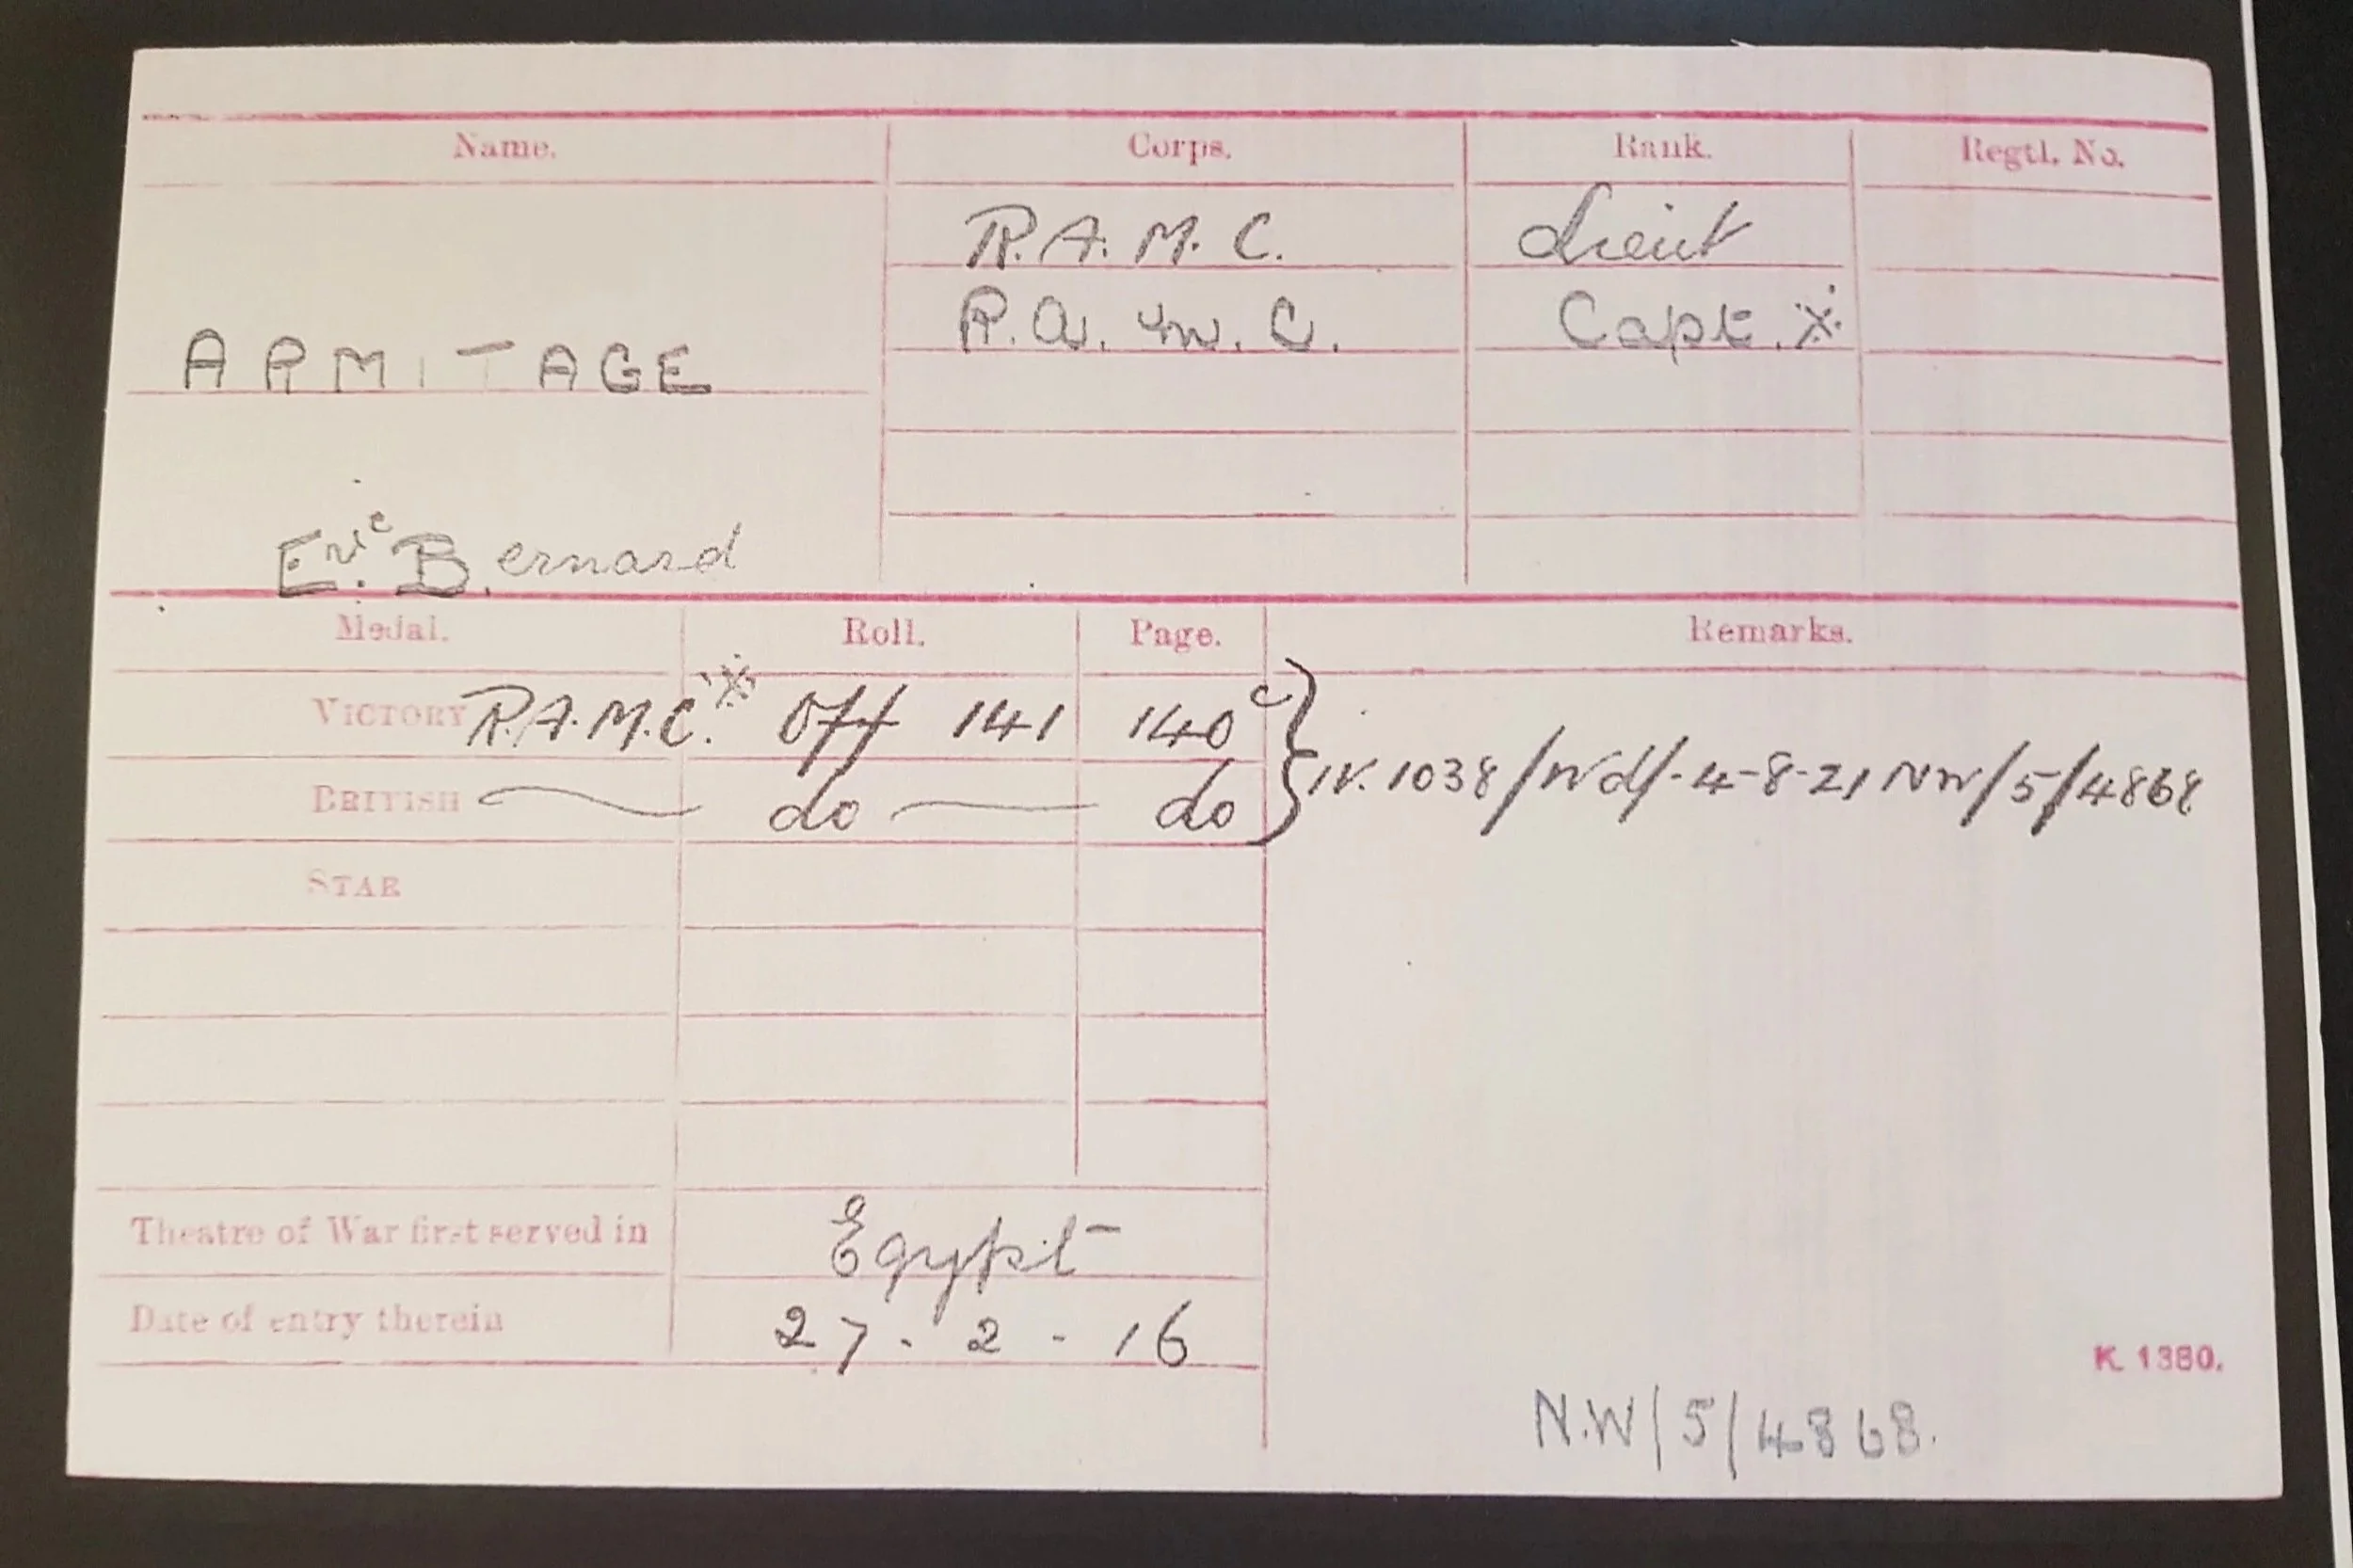 Name. Corps. Rank. Regtl. No.
R.A.M.C. Lieut
ARMITAGE R.A.M.C. Capt. X
Eric Bernard
Medal. Roll. Page. Remarks.
VICTORY R.A.M.C. X Off 141 140c
BRITISH do do } IV. 1038/Wd/-4-8-21 NW/5/4868
STAR
Theatre of War first served in Egypt
Date of entry therein 27-2-16
K. 1380.
N.W/5/4868.